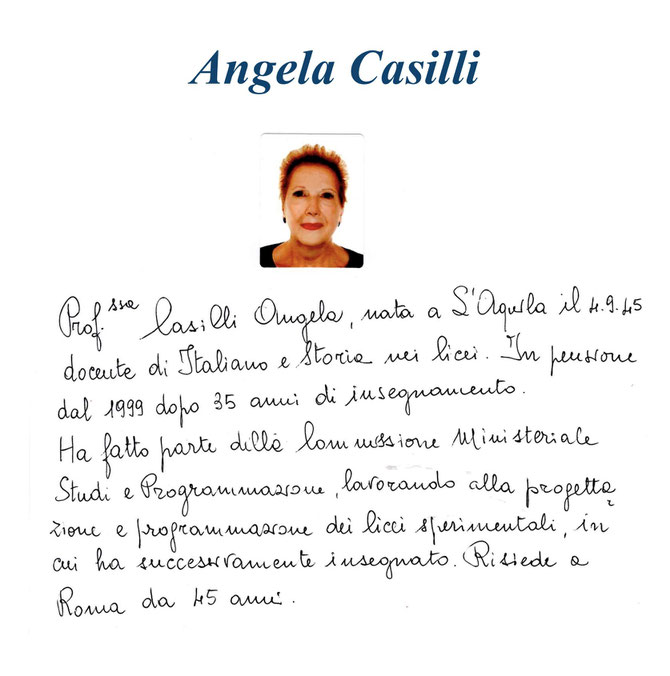 Angela Casilli
Prof.ssa Casilli Angela, nata a L'Aquila il 4.9.45
docente di Italiano e Storia nei licei. In pensione
dal 1999 dopo 35 anni di insegnamento.
Ha fatto parte della Commissione Ministeriale
Studi e Programmazione, lavorando alla progetta
zione e programmazione dei licei sperimentali, in
cui ha successivamente insegnato. Risiede a
Roma da 45 anni.